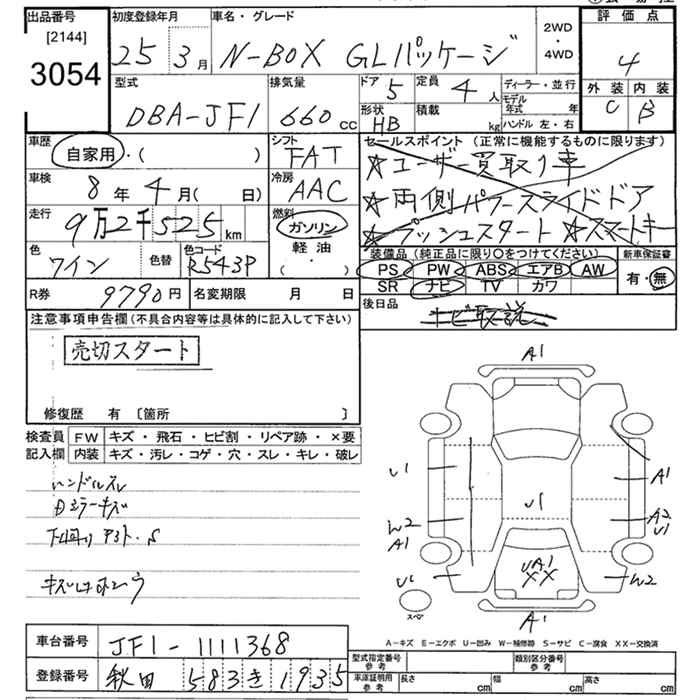 出品番号
[2144]
3054
初度登録年月
25 3月
車名・グレード
N-BOX GLパッケージ
2WD
・
4WD
評価点
4
外装 内装
C B
型式
DBA-JF1
排気量
660 cc
ドア 5
定員 4 人
形状 HB
積載 kg
ディーラー・並行
モデル年式 年
ハンドル 左・右
車歴
自家用・( )
シフト
FAT
セールスポイント (正常に機能するものに限ります)
☆ユーザー買取り車
☆両側パワースライドドア
☆プッシュスタート ☆スマートキー
車検
8年 4月( 日)
冷房
AAC
走行
9万2千525 km
燃料
ガソリン
軽油
( ・ )
色
ワイン
色替
色コード
R543P
装備品 (純正品に限り○をつけてください)
PS PW ABS エアB AW
SR ナビ TV カワ
新車保証書
有・無
R券
9790円
名変期限 月 日
後日品
ナビ取説
注意事項申告欄(不具合内容等は具体的に記入して下さい)
売切スタート
修復歴 有 〔箇所 〕
検査員
記入欄
FW キズ・飛石・ヒビ割・リペア跡・×要
内装 キズ・汚レ・コゲ・穴・スレ・キレ・破レ
ハンドルスレ
Dミラーキズ
下廻り サビ・S
A1
U1
A1
U1
W2
A1
A2
U1
U1
UA1
XX
W2
スペア
A1
A-キズ E-エクボ U-凹み W-補修跡 S-サビ C-腐食 XX-交換済
車台番号
JF1-1111368
登録番号
秋田 583 き 1935
型式指定番号
参考
類別区分番号
参考
車庫証明用
参考
長さ cm
幅 cm
高さ cm